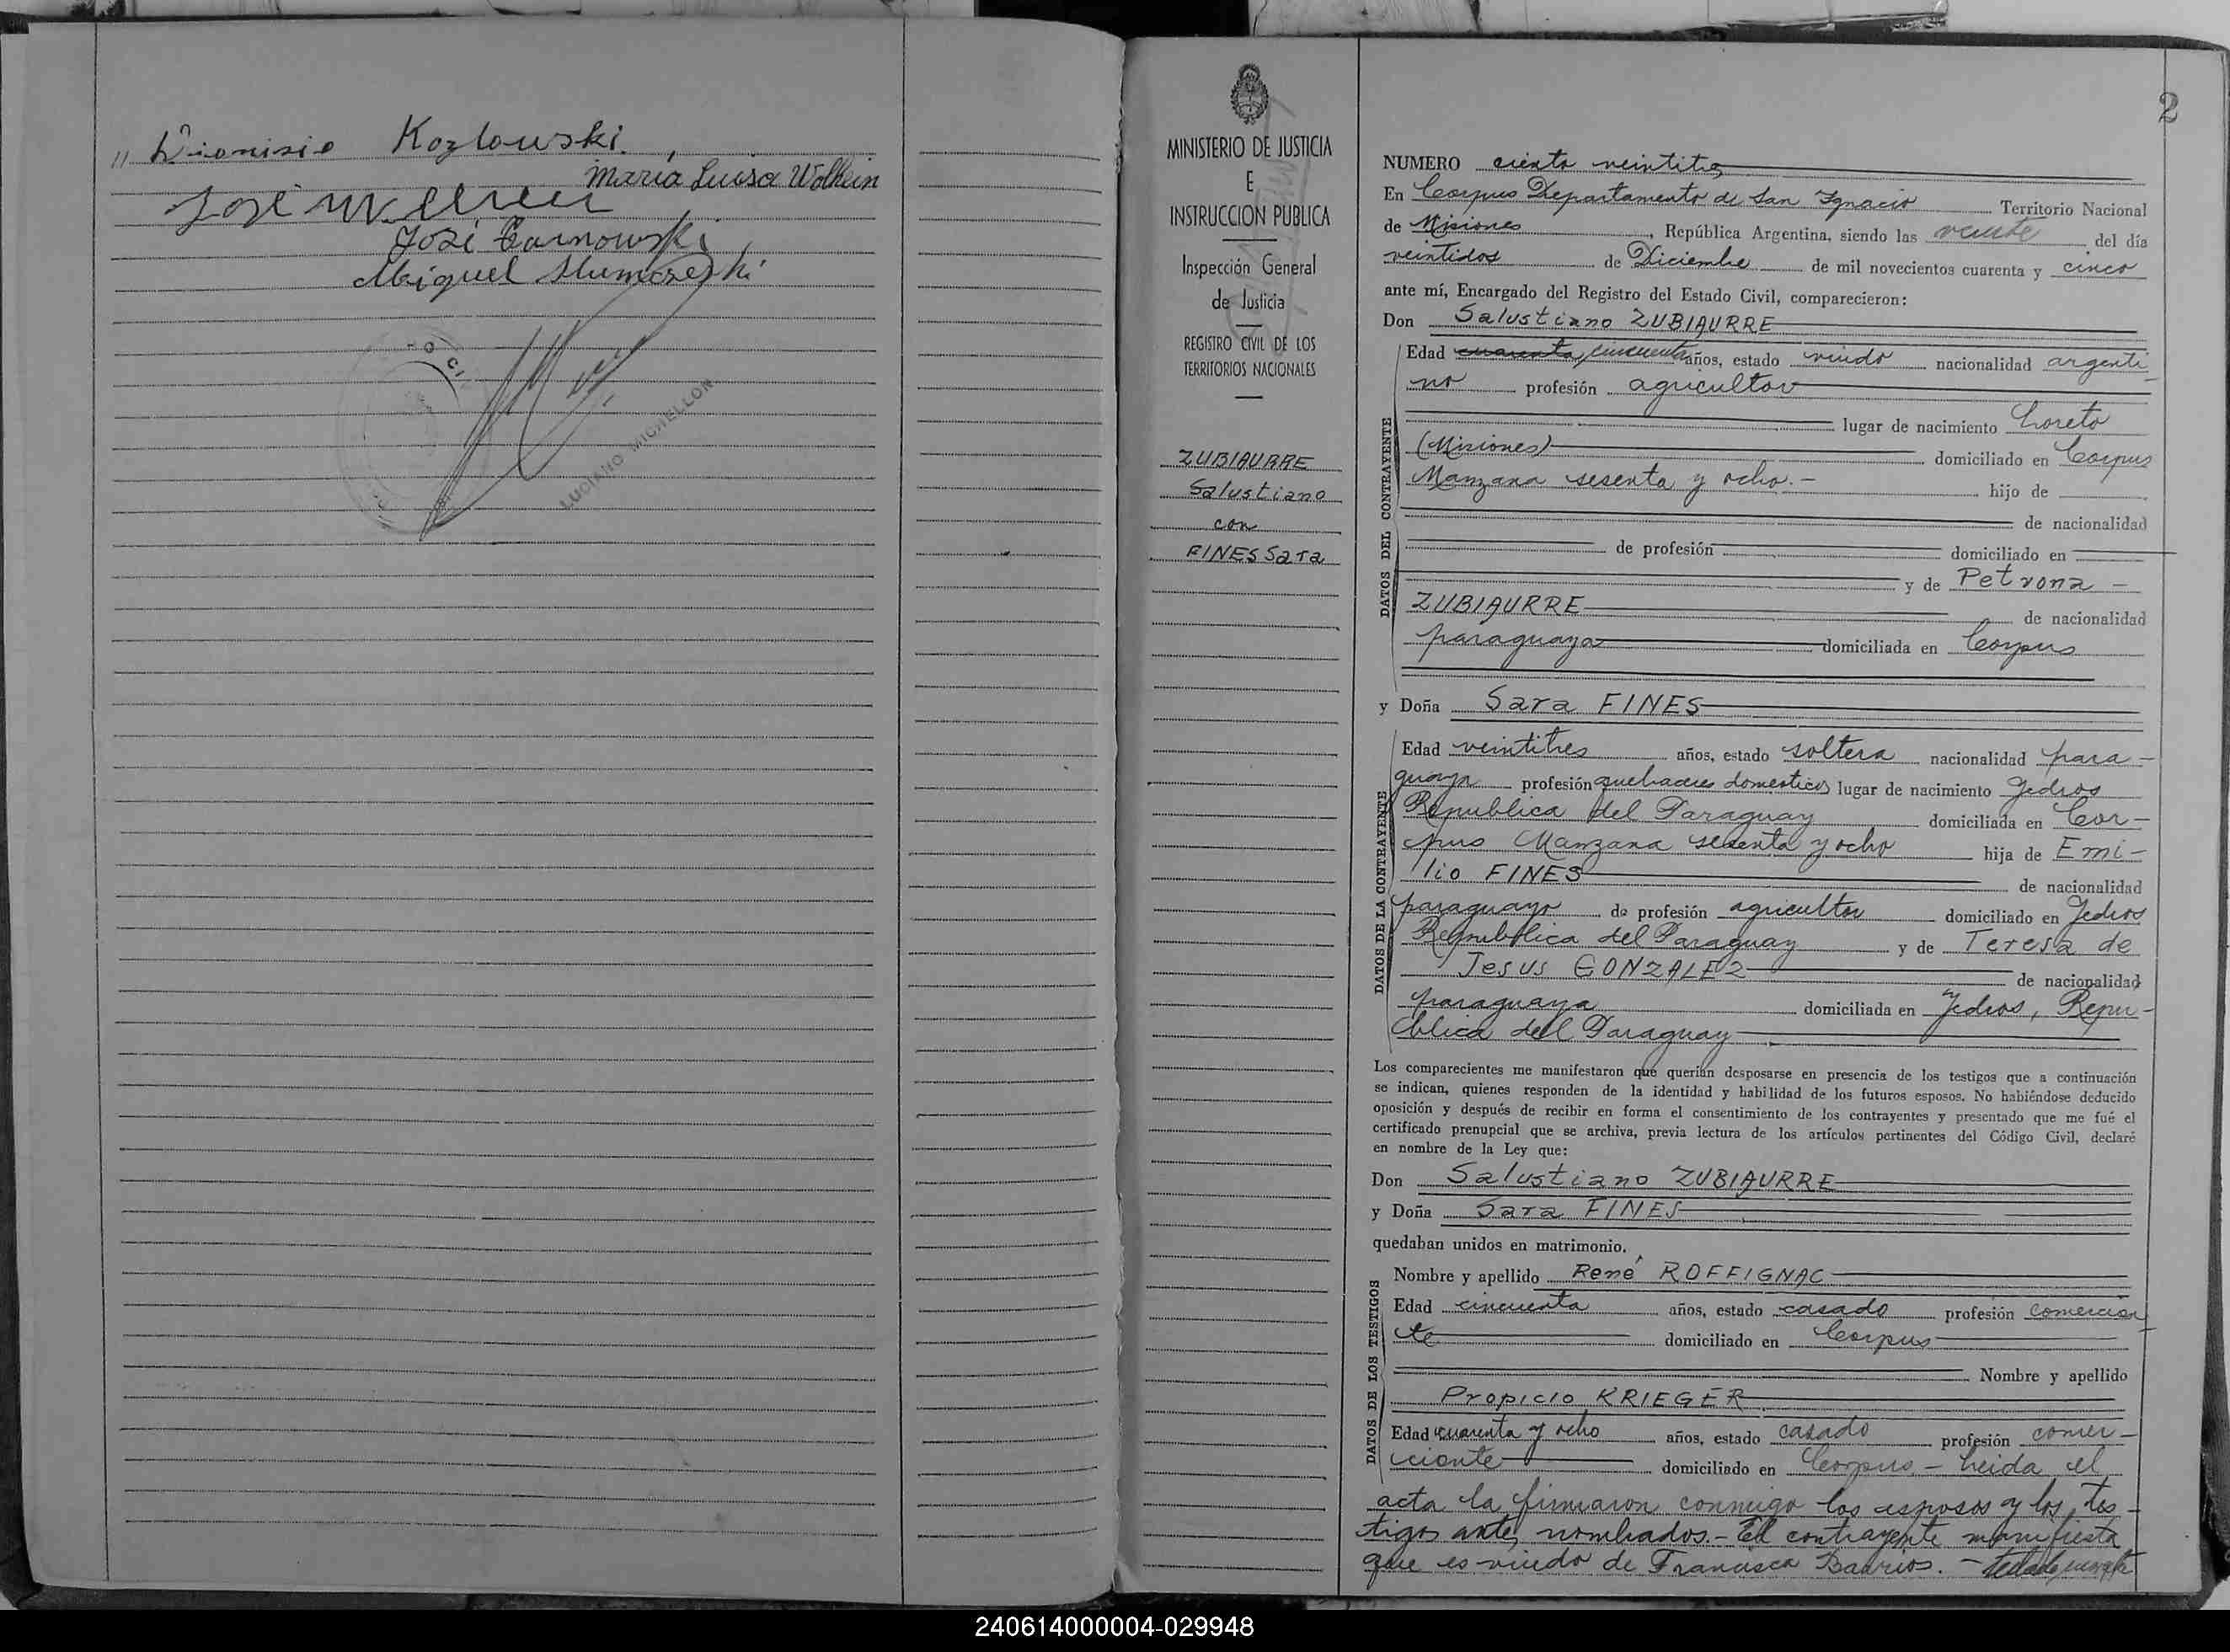 " Dionisio Kozlowski.
Maria Luisa Wolhein
José
José Tarnowski
Miguel
LUCIANO MICHELLON
MINISTERIO DE JUSTICIA
E
INSTRUCCION PUBLICA
Inspección General
de Justicia
REGISTRO CIVIL DE LOS
TERRITORIOS NACIONALES
ZUBIAURRE
Salustiano
con
FINES Sara
2
NUMERO ciento veintitres
En Corpus Departamento de San Ignacio Territorio Nacional
de Misiones, República Argentina, siendo las veinte del día
veintidos de Diciembre de mil novecientos cuarenta y cinco
ante mí, Encargado del Registro del Estado Civil, comparecieron:
Don Salustiano ZUBIAURRE
DATOS DEL CONTRAYENTE
Edad cuarenta, cincuenta años, estado viudo nacionalidad argenti
no profesión agricultor
lugar de nacimiento Loreto
(Misiones) domiciliado en Corpus
Manzana sesenta y ocho.- hijo de
de nacionalidad
de profesión domiciliado en
y de Petrona -
ZUBIAURRE de nacionalidad
paraguaya domiciliada en Corpus
y Doña Sara FINES
DATOS DE LA CONTRAYENTE
Edad veintitres años, estado soltera nacionalidad para-
guaya profesión quehaceres domesticos lugar de nacimiento Yedros
Republica del Paraguay domiciliada en Cor-
pus Manzana sesenta y ocho hija de Emi-
lio FINES de nacionalidad
paraguayo de profesión agricultor domiciliado en Yedros
Republica del Paraguay y de Teresa de
Jesus GONZALEZ de nacionalidad
paraguaya domiciliada en Yedros, Repu-
blica del Paraguay
Los comparecientes me manifestaron que querían desposarse en presencia de los testigos que a continuación
se indican, quienes responden de la identidad y habilidad de los futuros esposos. No habiéndose deducido
oposición y después de recibir en forma el consentimiento de los contrayentes y presentado que me fué el
certificado prenupcial que se archiva, previa lectura de los artículos pertinentes del Código Civil, declaré
en nombre de la Ley que:
Don Salustiano ZUBIAURRE
y Doña Sara FINES
quedaban unidos en matrimonio.
DATOS DE LOS TESTIGOS
Nombre y apellido René ROFFIGNAC
Edad cincuenta años, estado casado profesión comercian
te domiciliado en Corpus
Nombre y apellido
Propicio KRIEGER
Edad cuarenta y ocho años, estado casado profesión comer-
ciante domiciliado en Corpus - Leida el
acta la firmaron conmigo los esposos y los tes-
tigos antes nombrados.- El contrayente manifiesta
que es viudo de Francisca Barrios. -
240614000004-029948